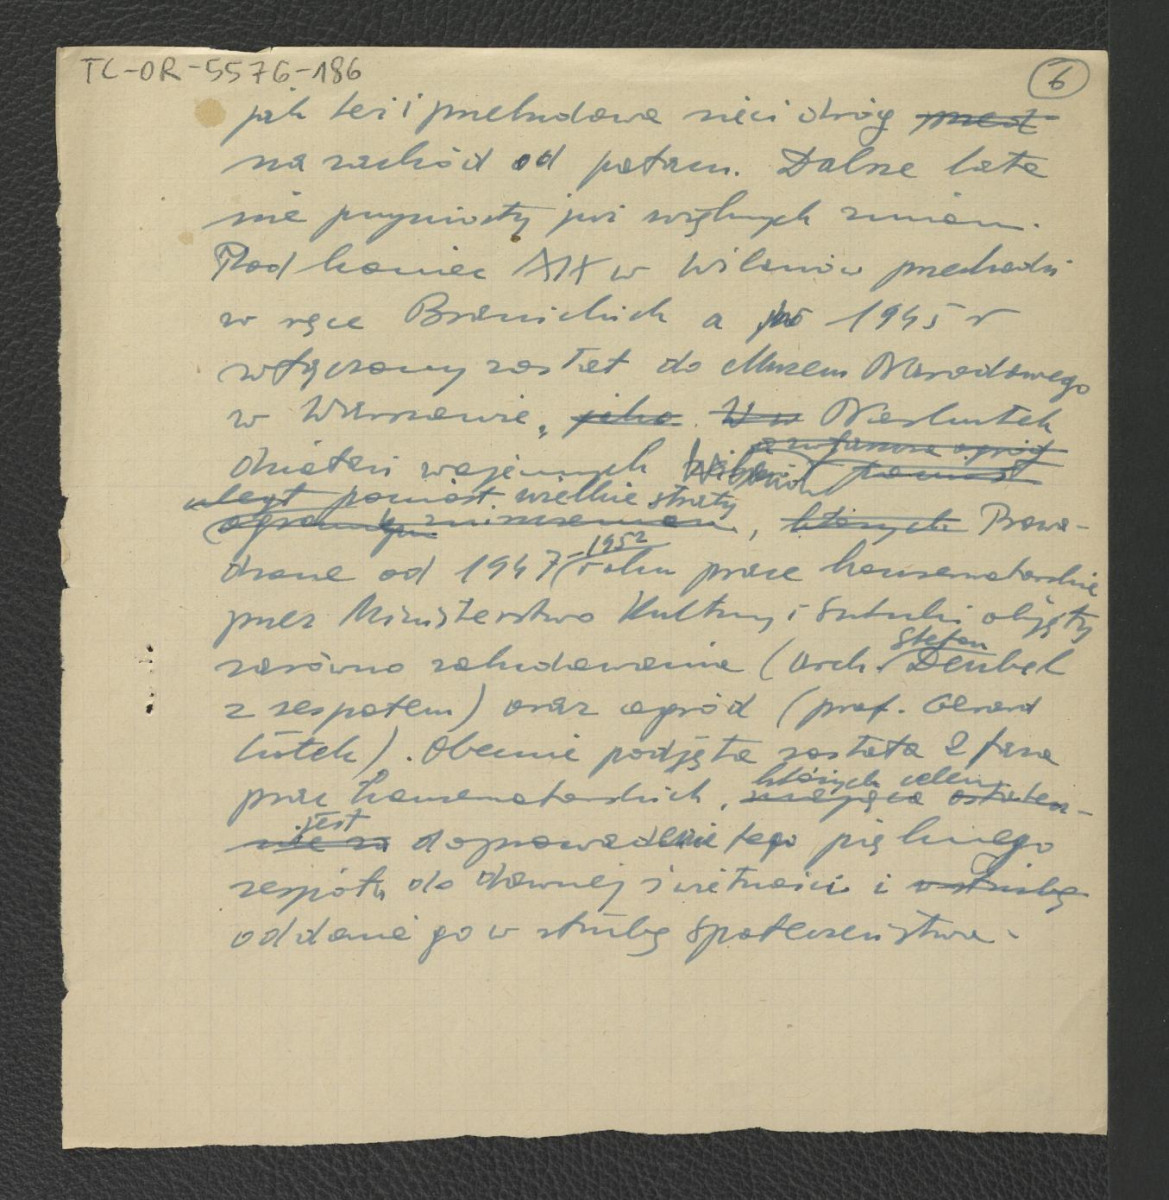 TC-OR-5576-186
6
jak też i przebudowa sieci dróg przed
na zachód od pałacu. Dalsze lata
nie przyniosły już większych zmian.
Pod koniec XIX w Wilanów przechodzi
w ręce Branickich a po 1945 r
włączony został do Muzeum Narodowego
w Warszawie, jako. W w Naskutek
działań wojennych Wilanów
a zwłaszcza ogród poniósł
uległ poniósł wielkie straty
ogromnym zniszczeniom, których Prowa-
dzone od 1947-1952 roku prace konserwatorskie
przez Ministerstwo Kultury i Sztuki objęły
zarówno zabudowania (arch. Stefan Deubel
z zespołem) oraz ogród (prof. Gerard
Ciołek). Obecnie podjęta została 2 faza
prac konserwatorskich, których celem
mające ostatecz-
nie za jest doprowadzenie tego pięknego
zespołu do dawnej świetności i w służbę
oddanie go w służbę społeczeństwa.